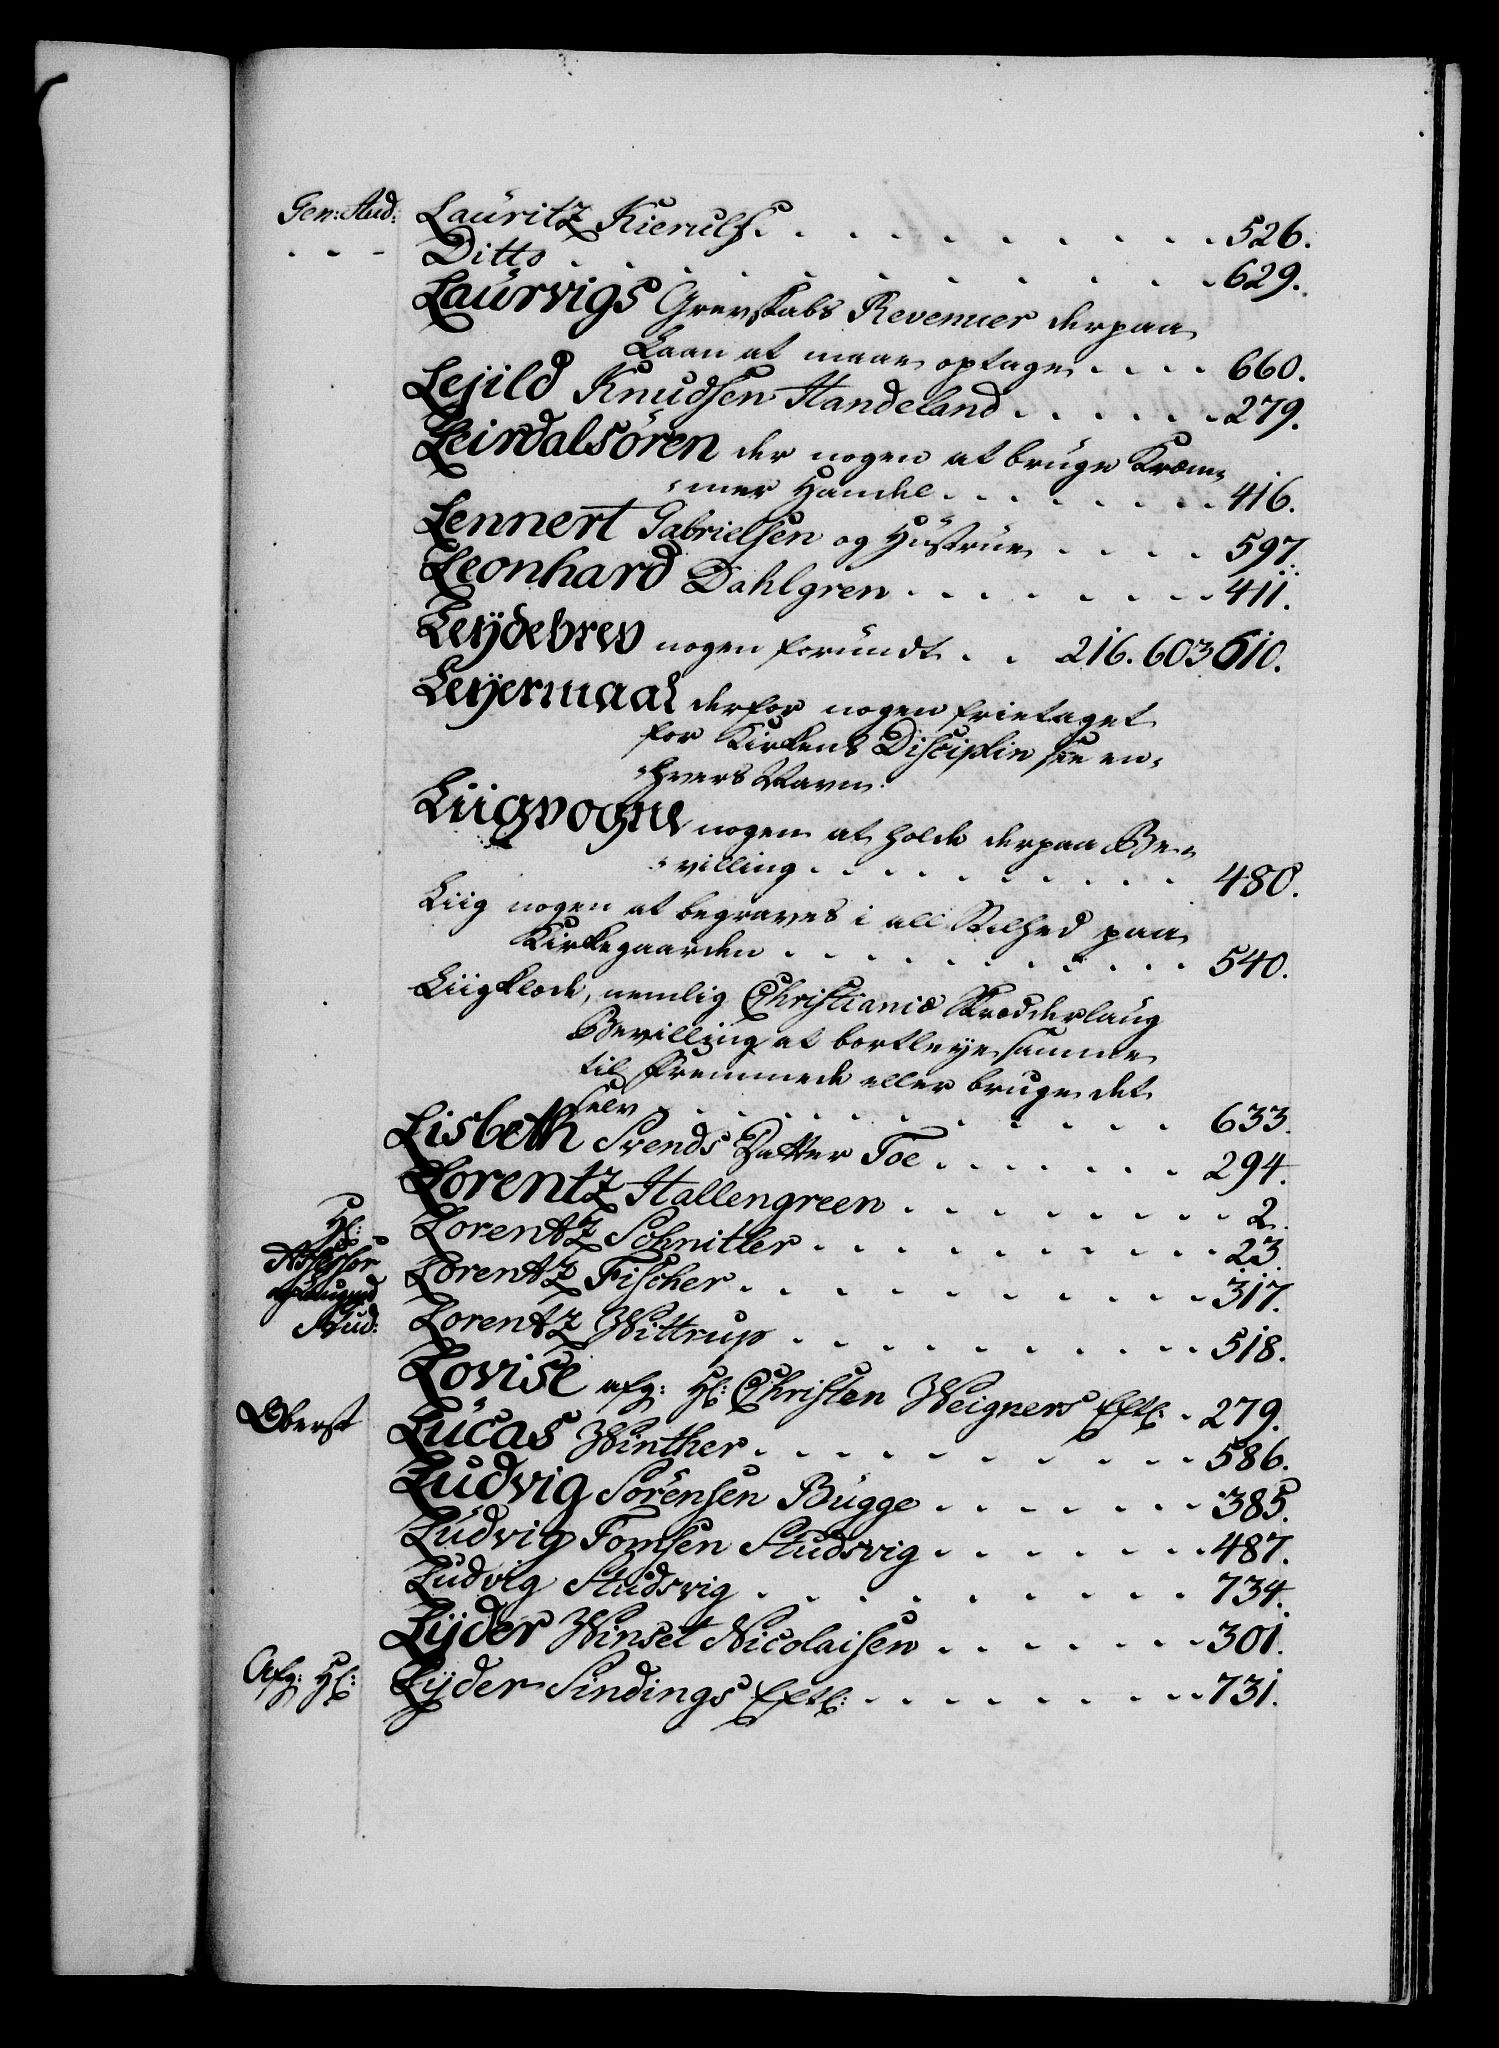 Gen: Aud: Lauritz Kierulf . . . . . . . . . . 526.
. - - Ditto . . . . . . . . . . 629.
Laurvigs Grevskabs Revenuer derpaa
Laan at maae optage . . . . 660.
Lejild Knudsen Handeland . . . . . . 279.
Leirdalsören der nogen at bruge Kram-
mer Handel . . . . . . . . 416.
Lennert Gabrielsen og Hustrue . . . . 597.
Leonhard Dahlgren . . . . . . . . 411.
Leydebrev nogen forundt . . 216. 603 610.
Leyermaal derfor nogen frietaget
for Kirkens Disciplin see en-
hvers Navn.
Liigvogne nogen at holde derpaa Be-
villing . . . . . . . . . . 480.
Liig nogen at begraves i all Stilhed paa
Kirkegaarden . . . . . . . . . . 540.
Liigklæde, nemlig Christianiæ Skrædderlaug
Bevilling at bortleye samme
til Fremmede eller bruge det
selv . . . . . . . . . . . . 633.
Lisbeth Svends Datter Toe . . . . . . . 294.
Lorentz Hallengreen . . . . . . . . 2.
Hl: Lorentz Schnitler . . . . . . . . . . 23.
Assessor Lorentz Fischer . . . . . . . . . . 317.
og Laugmd
Stud: Lorentz Wittrup . . . . . . . . . . 518.
Lovise afg: Hl: Christen Weigners Eftl: . 279.
Oberst Lucas Winther . . . . . . . . . . 586.
Ludvig Sörensen Bugge . . . . . . . 385.
Ludvig Tomsen Studsvig . . . . . . . 487.
Ludvig Studsvig . . . . . . . . . . 734.
Lyder Winset Nicolaisen . . . . . . . 301.
Afg: Hl: Lyder Sindings Eftl: . . . . . . . . . 731.